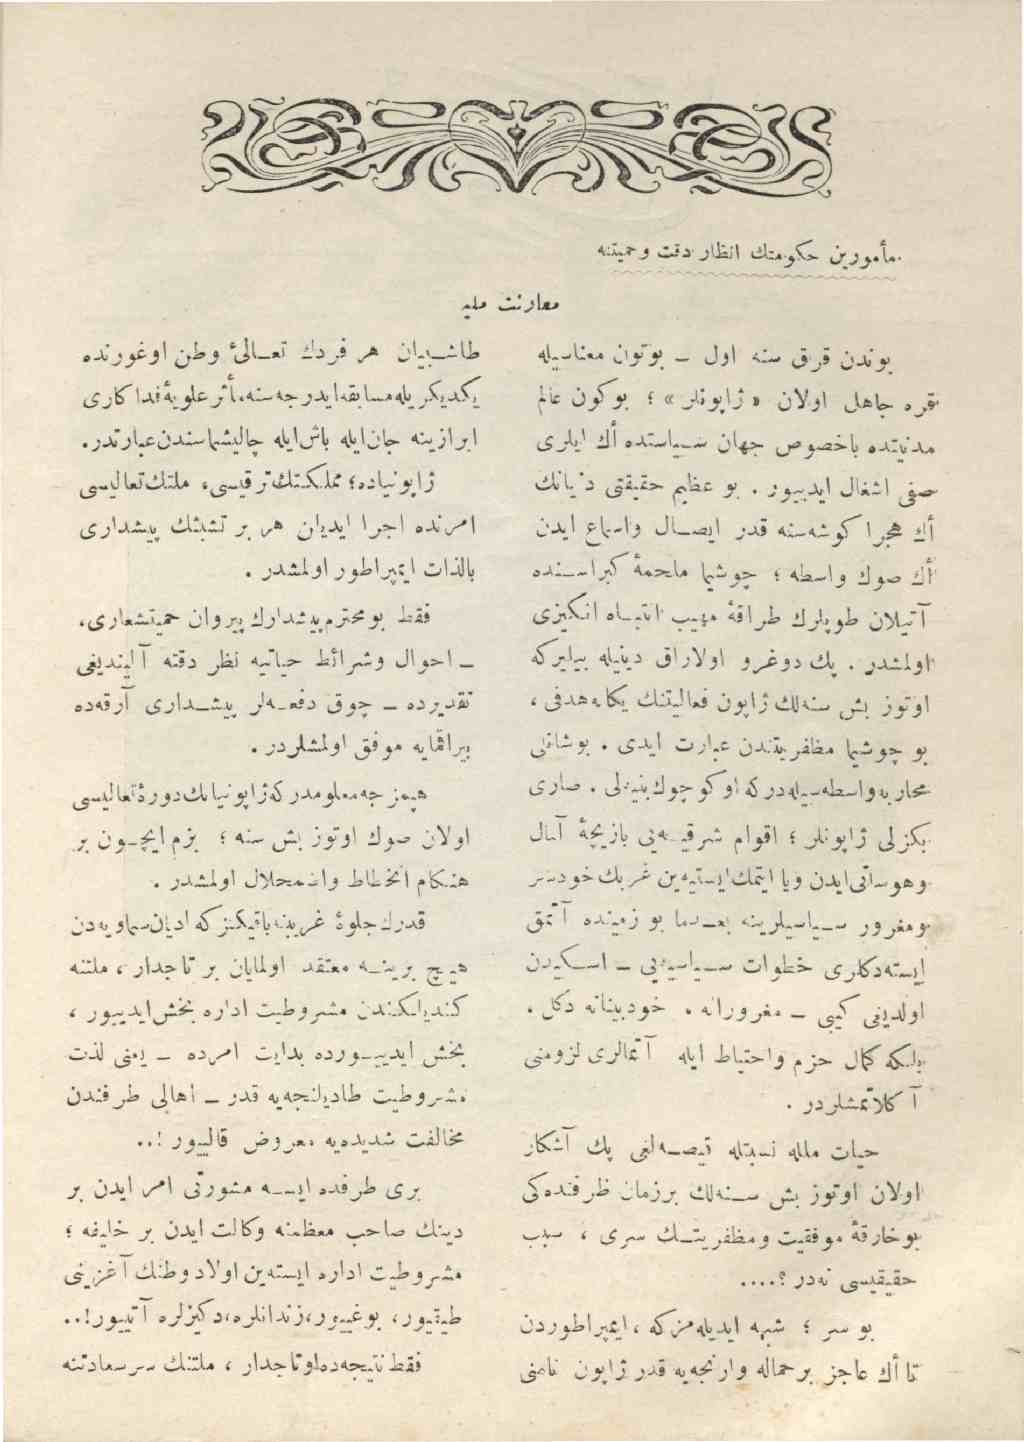 مأمورین حکومتك انظار دقت و حمیتنه
معاونت ملیه
بوندن قرق سنه اول ـ بوتون معناسیله
قره جاهل اولان «ژاپونلر» ؛ بوکون عالم
مدنیتده باخصوص جهان سیاستده أك ایلری
صفی اشغال ایدییور . بو عظیم حقیقتی دنیانك
أك هجرا کوشه‌سنه قدر ایصال واسماع ایدن
أك صوك واسطه ؛ چوشیما ملحمهٔ کبراسنده
آتیلان طوپلرك طراقهٔ مهیب انتباه انکیزی
اولمشدر . پك دوغرو اولاراق دینیله بیلیرکه
اوتوز بش سنه‌لك ژاپون فعالیتنك یکانه هدفی ،
بو چوشیما مظفریتندن عبارت ایدی . بوشانلی
محاربه واسطه‌سیله‌درکه او کوچوك بنیه‌لی . صاری
بکزلی ژاپونلر ؛ اقوام شرقیه‌یی بازیچهٔ آمال
وهوساتی ایدن ویا ایتمك ایسته‌ین غربك خودسر
ومغرور سیاسیلرینه بعدما بو زمینده آتمق
ایسته‌دکلری خطوات سیاسیه‌یی ـ اسکیدن
اولدیغی کیبی ـ مغرورانه . خودبینانه دکل .
بلکه کمال حزم واحتیاط ایله آتمالری لزومنی
آکلاتمشلردر .
حیات ملله نسبتله قیصه‌لغی پك آشکار
اولان اوتوز بش سنه‌لك برزمان ظرفنده‌کی
بوخارقهٔ موفقیت ومظفریتك سری ، سبب
حقیقیسی نه‌در ؟....
بو سر ؛ شبهه ایدیله‌مزکه ، ایمپراطوردن
تا أك عاجز برحماله وارنجه‌یه قدر ژاپون نامنی
طاشییان هر فردك تعالیٔ وطن اوغورنده
یکدیکریله مسابقه ایدرجه‌سنه، مآثر علویهٔ فداکاری
ابرازینه جان ایله باش ایله چالیشماسندن عبارتدر.
ژاپونیاده؛ مملکتك ترقیسی، ملتك تعالیسی
امرنده اجرا ایدیلن هر بر تشبثك پیشداری
بالذات ایمپراطور اولمشدر .
فقط بو محترم پیشدارك پیروان حمیتشعاری،
ـ احوال وشرائط حیاتیه نظر دقته آلیندیغی
تقدیرده ـ چوق دفعه‌لر پیشداری آرقه‌ده
بیراقمایه موفق اولمشلردر .
هپمزجه معلومدرکه ژاپونیانك دورهٔ تعالیسی
اولان صوك اوتوز بش سنه ؛ بزم ایچون بر
هنکام انحطاط واضمحلال اولمشدر .
قدرك جلوهٔ غریبه‌سنه باقیکزکه ادیان سماویه‌دن
هیچ برینه معتقد اولمایان بر تاجدار ، ملتنه
کندیلکندن مشروطیت اداره بخش ایدییور ،
بخش ایدییورده بدایت امرده ـ یعنی لذت
مشروطیت طادیلنجه‌یه قدر ـ اهالی طرفندن
مخالفت شدیده‌یه معروض قالییور !..
بری طرفده ایسه مشورتی امر ایدن بر
دینك صاحب معظمنه وکالت ایدن بر خلیفه ؛
مشروطیت اداره ایسته‌ین اولاد وطنك آغزینی
طیقییور، بوغییور، زندانلره، دکیزلره آتییور!..
فقط نتیجه‌ده او تاجدار ، ملتنك سرسعادتنه